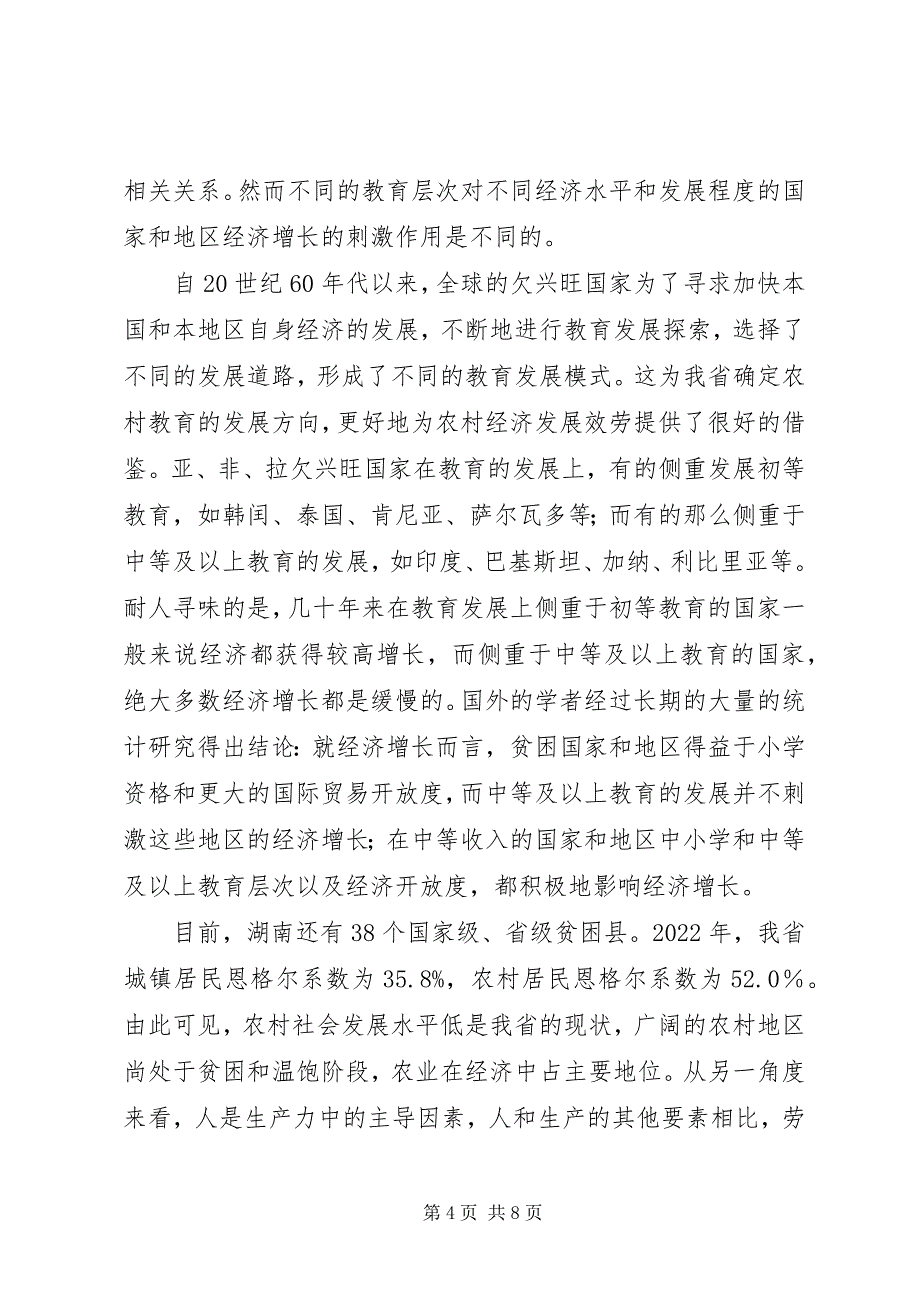 相关关系。然而不同的教育层次对不同经济水平和发展程度的国
家和地区经济增长的刺激作用是不同的。
自 20 世纪 60 年代以来，全球的欠兴旺国家为了寻求加快本
国和本地区自身经济的发展，不断地进行教育发展探索，选择了
不同的发展道路，形成了不同的教育发展模式。这为我省确定农
村教育的发展方向，更好地为农村经济发展效劳提供了很好的借
鉴。亚、非、拉欠兴旺国家在教育的发展上，有的侧重发展初等
教育，如韩闰、泰国、肯尼亚、萨尔瓦多等；而有的那么侧重于
中等及以上教育的发展，如印度、巴基斯坦、加纳、利比里亚等。
耐人寻味的是，几十年来在教育发展上侧重于初等教育的国家一
般来说经济都获得较高增长，而侧重于中等及以上教育的国家，
绝大多数经济增长都是缓慢的。国外的学者经过长期的大量的统
计研究得出结论：就经济增长而言，贫困国家和地区得益于小学
资格和更大的国际贸易开放度，而中等及以上教育的发展并不刺
激这些地区的经济增长；在中等收入的国家和地区中小学和中等
及以上教育层次以及经济开放度，都积极地影响经济增长。
目前，湖南还有 38 个国家级、省级贫困县。2022 年，我省
城镇居民恩格尔系数为 35.8%，农村居民恩格尔系数为 52.0％。
由此可见，农村社会发展水平低是我省的现状，广阔的农村地区
尚处于贫困和温饱阶段，农业在经济中占主要地位。从另一角度
来看，人是生产力中的主导因素，人和生产的其他要素相比，劳
第 4 页 共 8 页